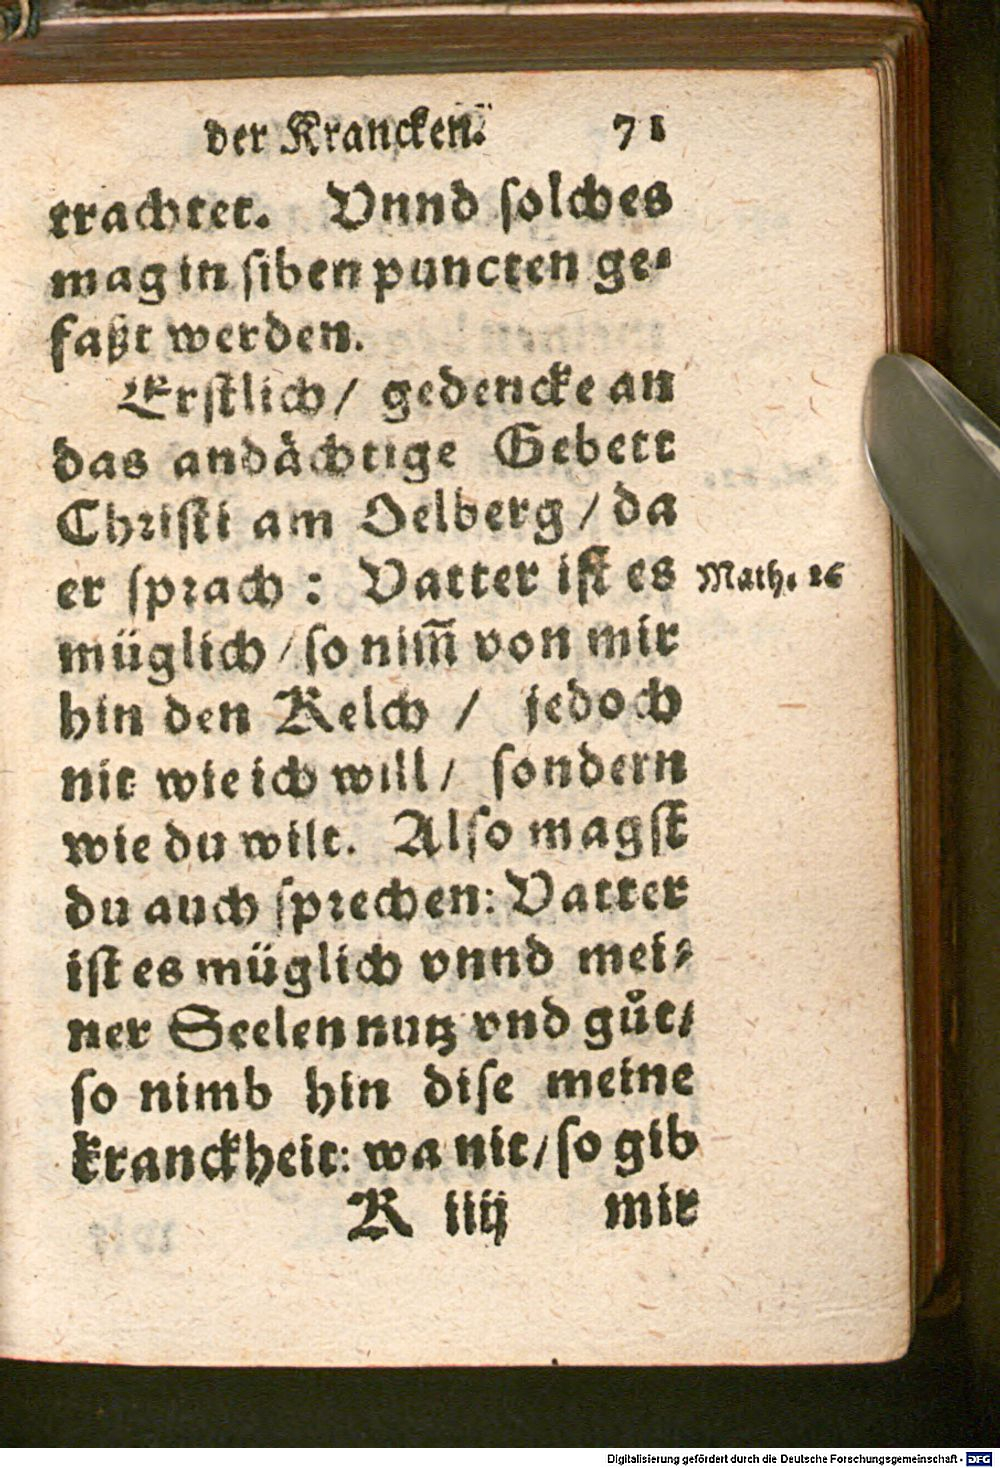 der Krancken. 71
trachtet. Vnnd ſolches
mag in ſiben puncten ge⸗
faßt werden.
Erſtlich/ gedencke an
das andaͤchtige Gebett
Chriſti am Oelberg/ da
er ſprach: Vatter iſt es
Math. 26
müglich/ ſo nim̅ von mir
hin den Kelch/ jedoch
nit wie ich will/ ſondern
wie du wilt. Alſo magſt
du auch ſprechen: Vatter
iſt es müglich vnnd mei⸗
ner Seelen nutz vnd guͦt/
ſo nimb hin diſe meine
kranckheit: wa nit/ ſo gib
K iiij mir
Digitalisierung gefördert durch die Deutsche Forschungsgemeinschaft - DFG